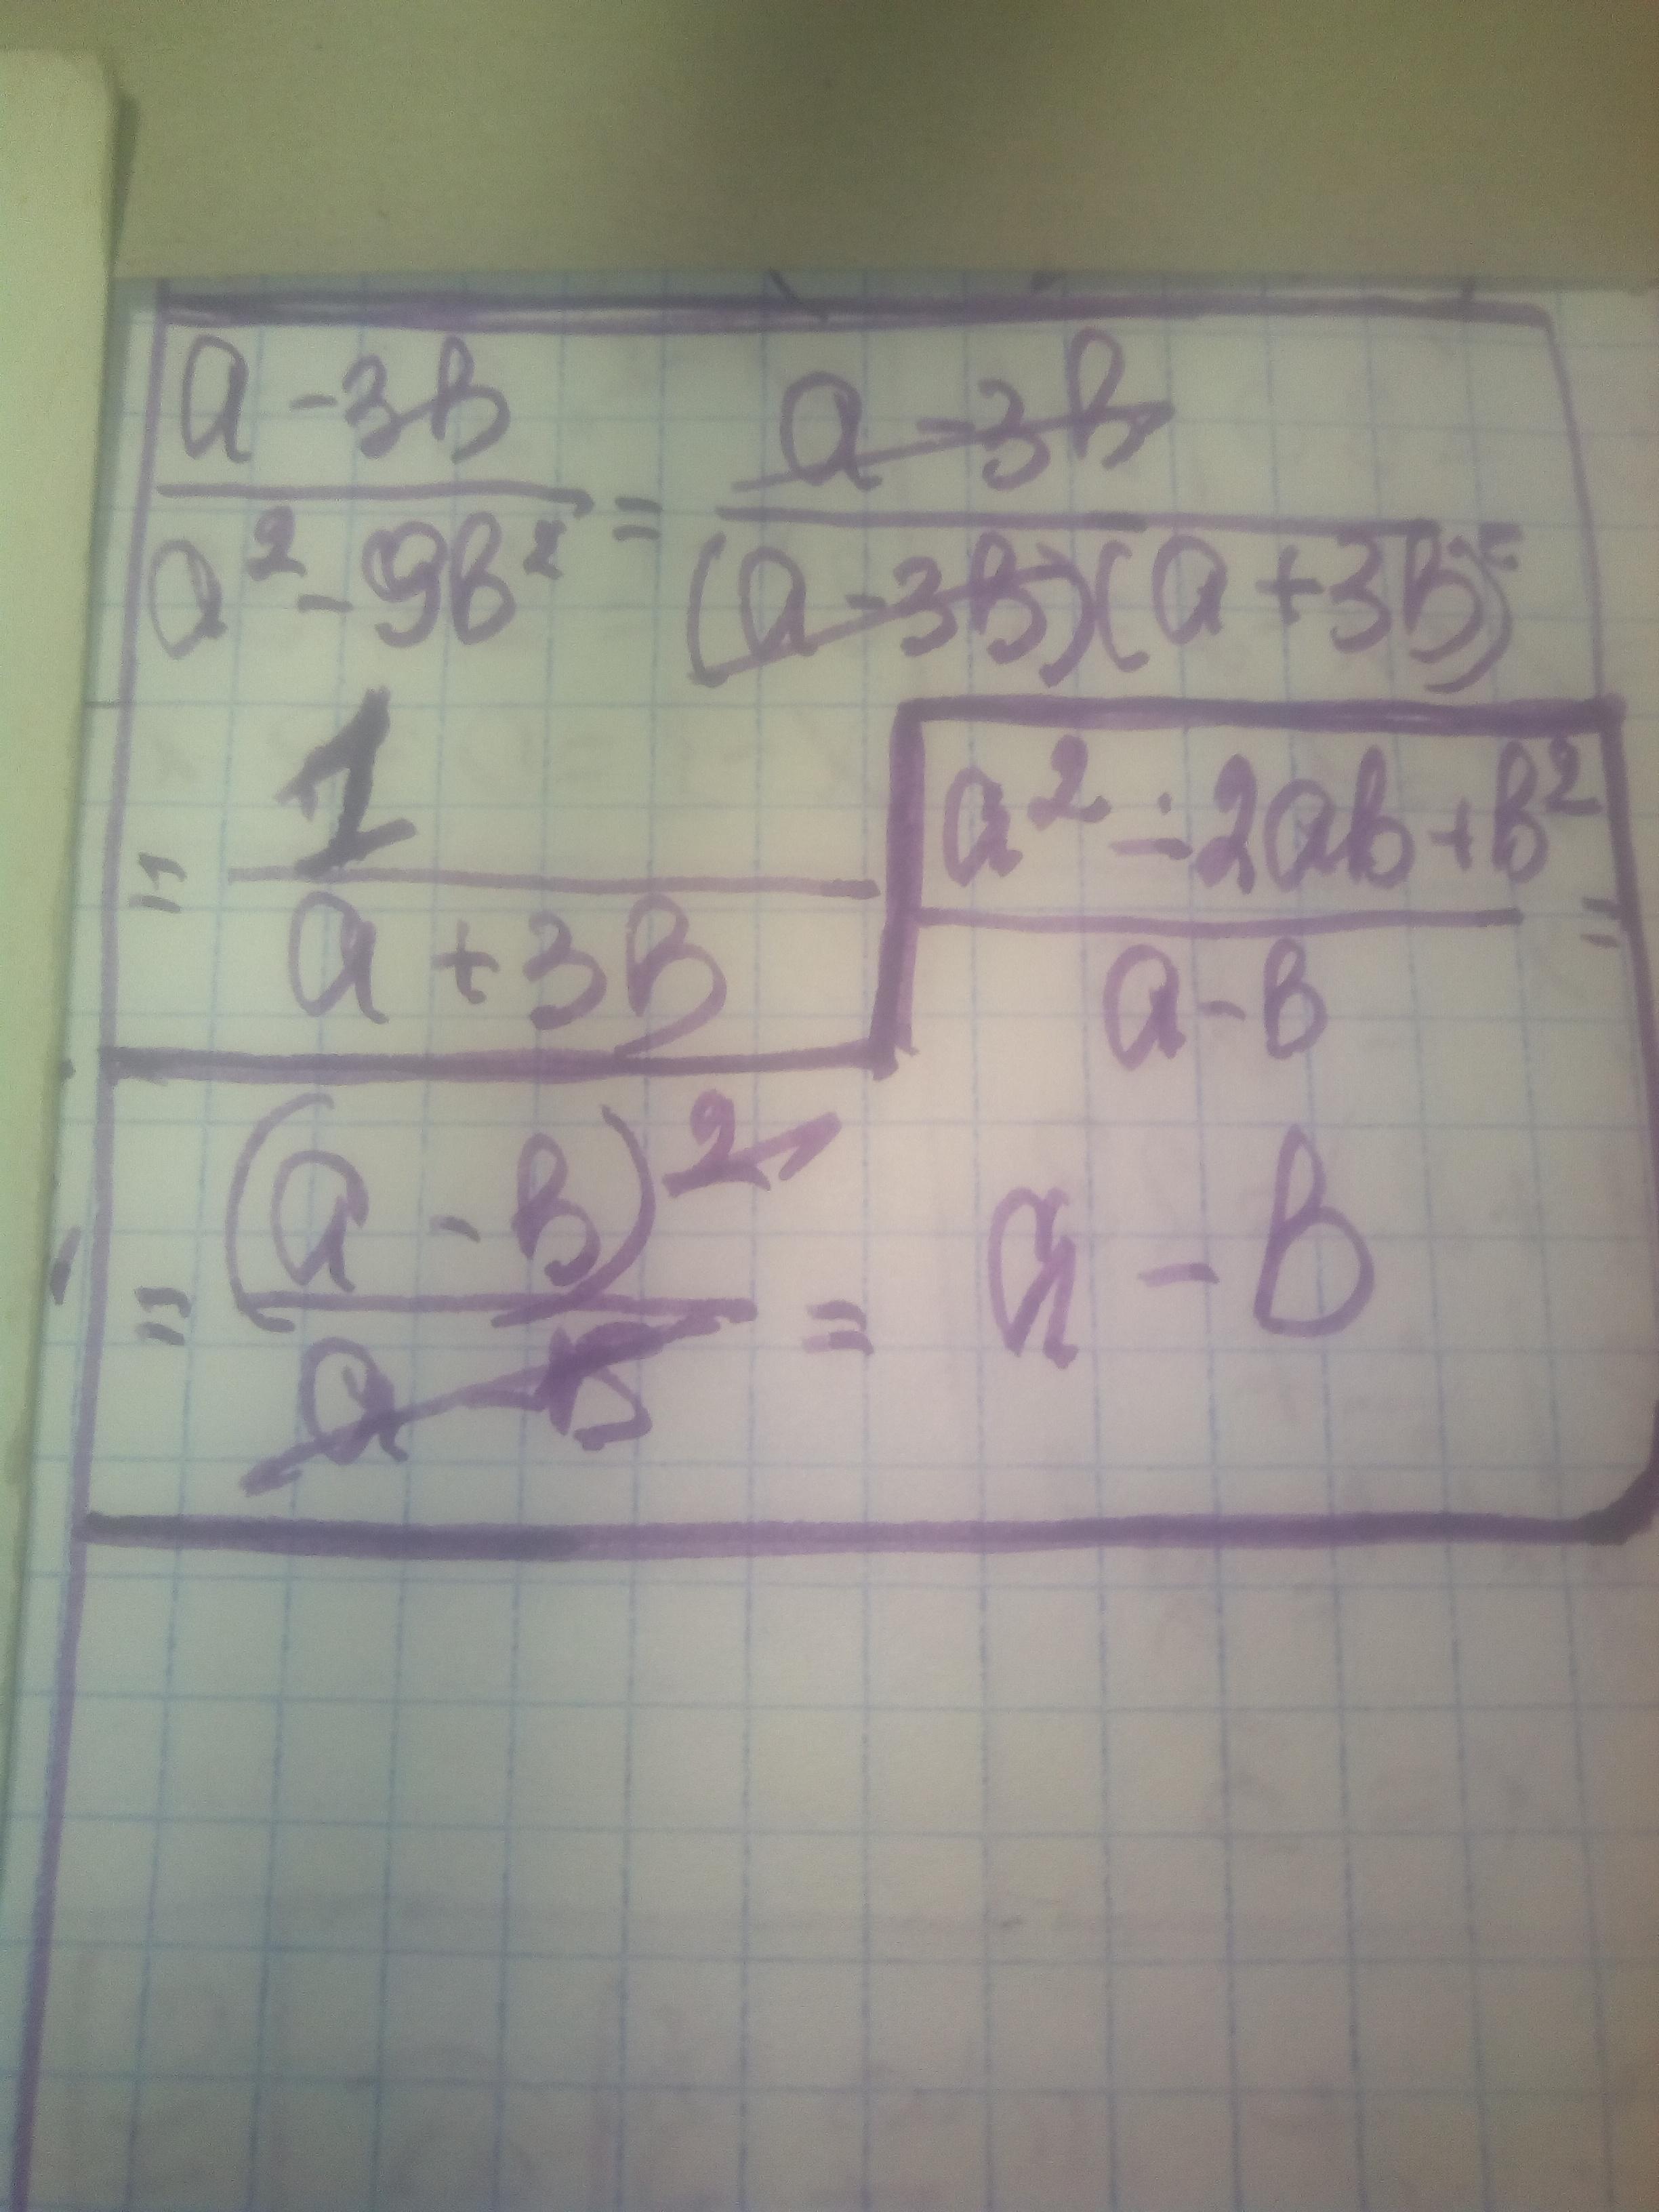 (a - 3b)/(a² - 9b²) = (a - 3b)/((a - 3b)(a + 3b)) =
= 1/(a + 3b)
(a² - 2ab + b²)/(a - b) =
= (a - b)²/(a - b) = a - b